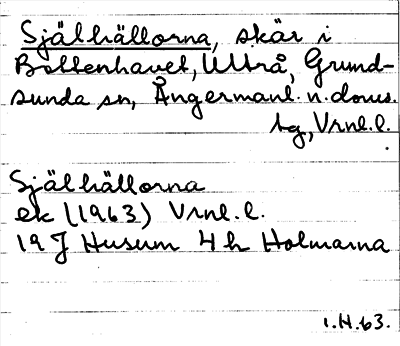 Själhällorna, skär i
Bottenhavet, Ultrå, Grund-
sunda sn, Ångermanl. n. doms.
tg, Vrnl.l.
Själhällorna
ek (1963) Vrnl.l.
19 J Husum 4 h Holmarna
1.H.63.